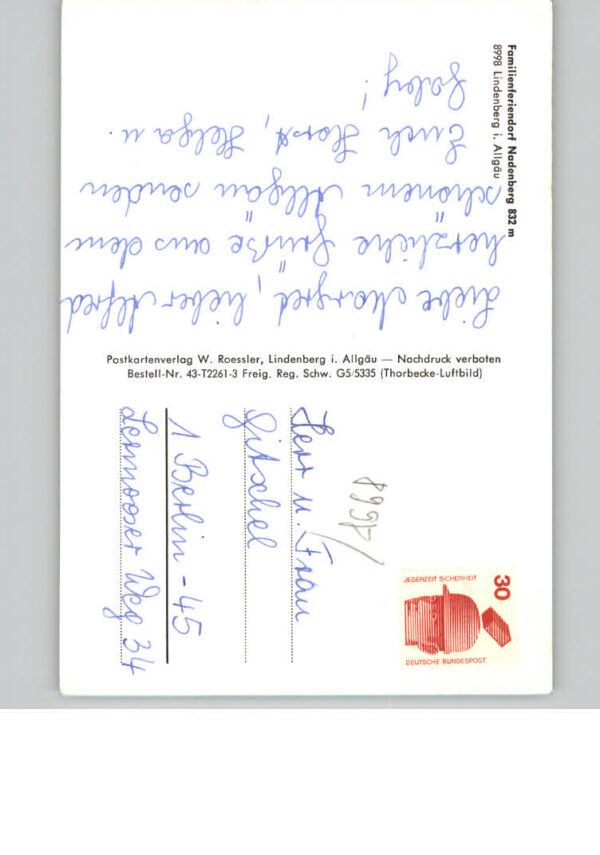 Familienferiendorf Nadenberg 832 m
8998 Lindenberg i. Allgäu
Liebe Margret, lieber Alfred
herzliche Grüße aus dem
schönem Allgäu senden
Euch Horst, Helga u.
Gaby!
Postkartenverlag W. Roessler, Lindenberg i. Allgäu — Nachdruck verboten
Bestell-Nr. 43-T2261-3 Freig. Reg. Schw. G5/5335 (Thorbecke-Luftbild)
8998
30
JEDERZEIT SICHERHEIT
DEUTSCHE BUNDESPOST
Herr u. Frau
Gitschel
1 Berlin - 45
Lermooser Weg 34